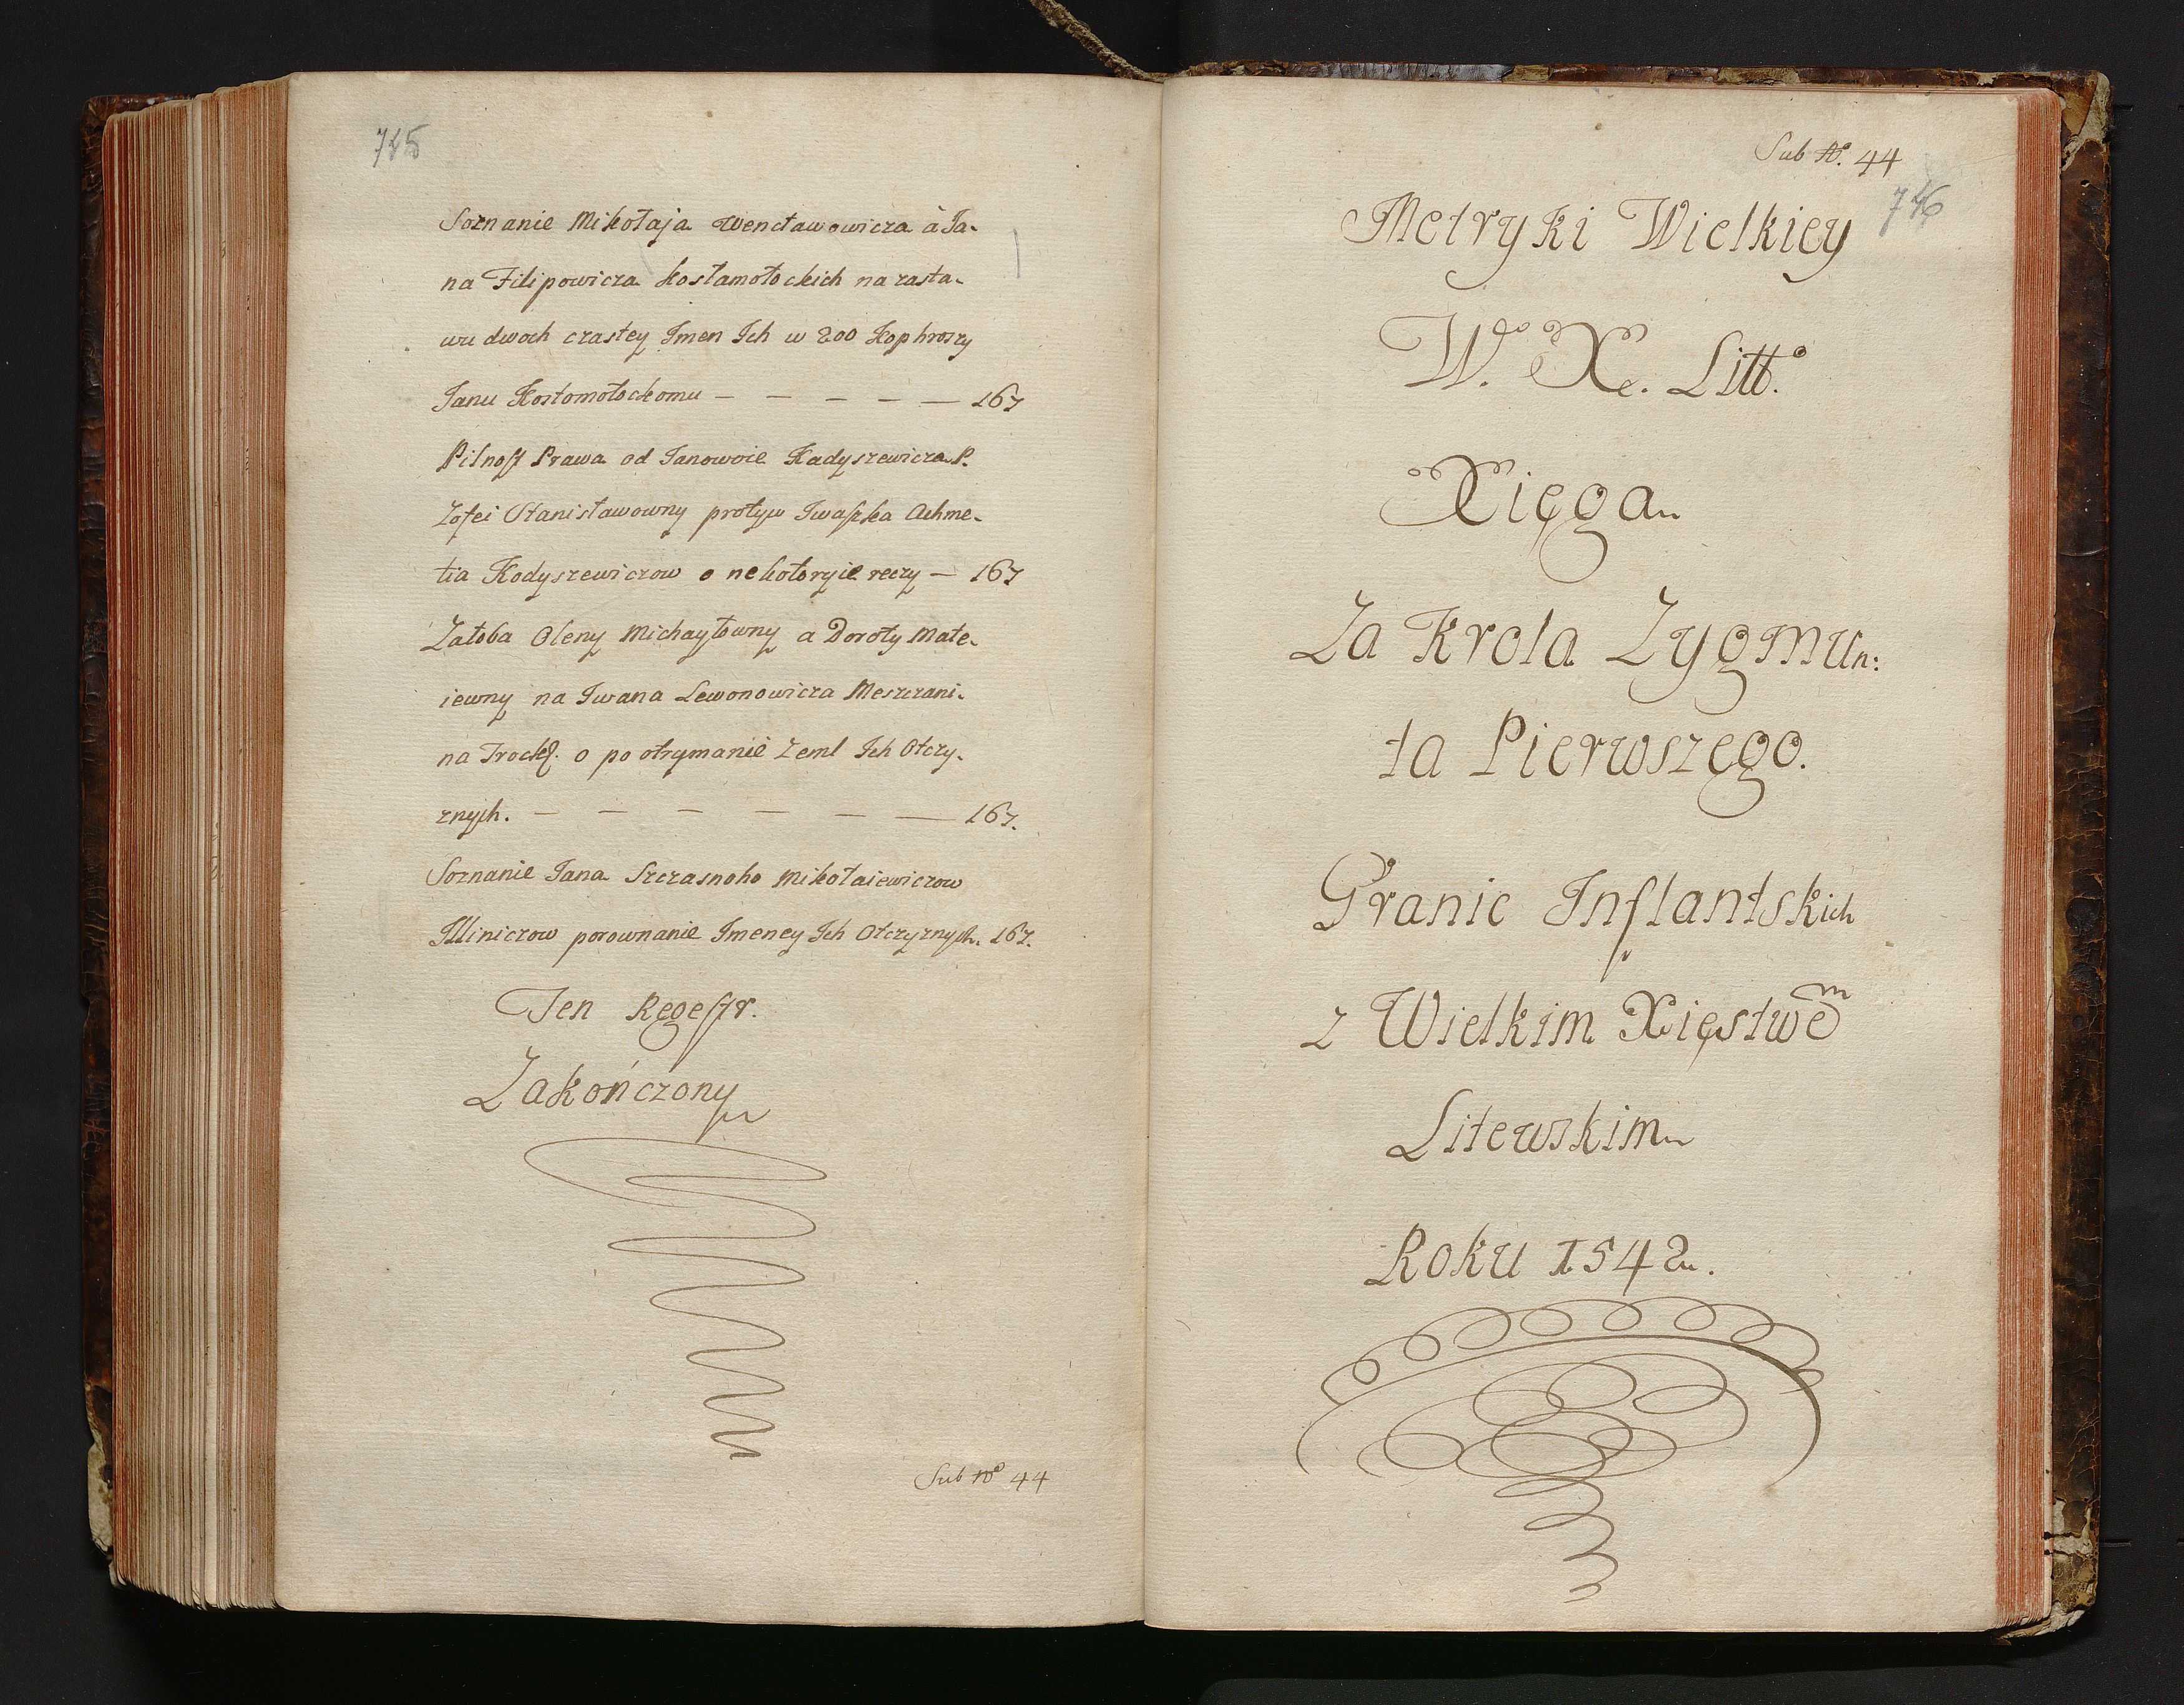 Soznanie Mikołaja Wencławowicza à Ja-
na Filipowicza Kostamołockich na zasta-
wu dwoch czastey Jmen Jch w 200 Kop hroszy
Janu Kostomołockomu — — — — — 167
Pilnost Prawa od Janowoie Kadyszewicza P.
Zofei Stanisławowny protyw Iwaszka Achme-
tia Kodyszewiczow o nekotoryie reczy — 167
Załoba Oleny Michayłowny a Doroty Mate-
iewny na Iwana Lewonowicza Meszczani-
na Trock. o po otrymanie Zeml Jch Otczy-
znych. — — — — — — 167.
Soznanie Jana Szczasnoho Mikołaiewiczow
Illiniczow porownanie Jmeney Jch Otczyznych. 167.
Ten Regestr.
Zakończony
Sub No 44
Sub No. 44
746
Metryki Wielkiey
W.go X.e Litt.o
Xięga
Za Krola Zygmun:
ta Pierwszego.
Granic Inflantskich
z Wielkim Xięstwem
Litewskim
Roku 1542.